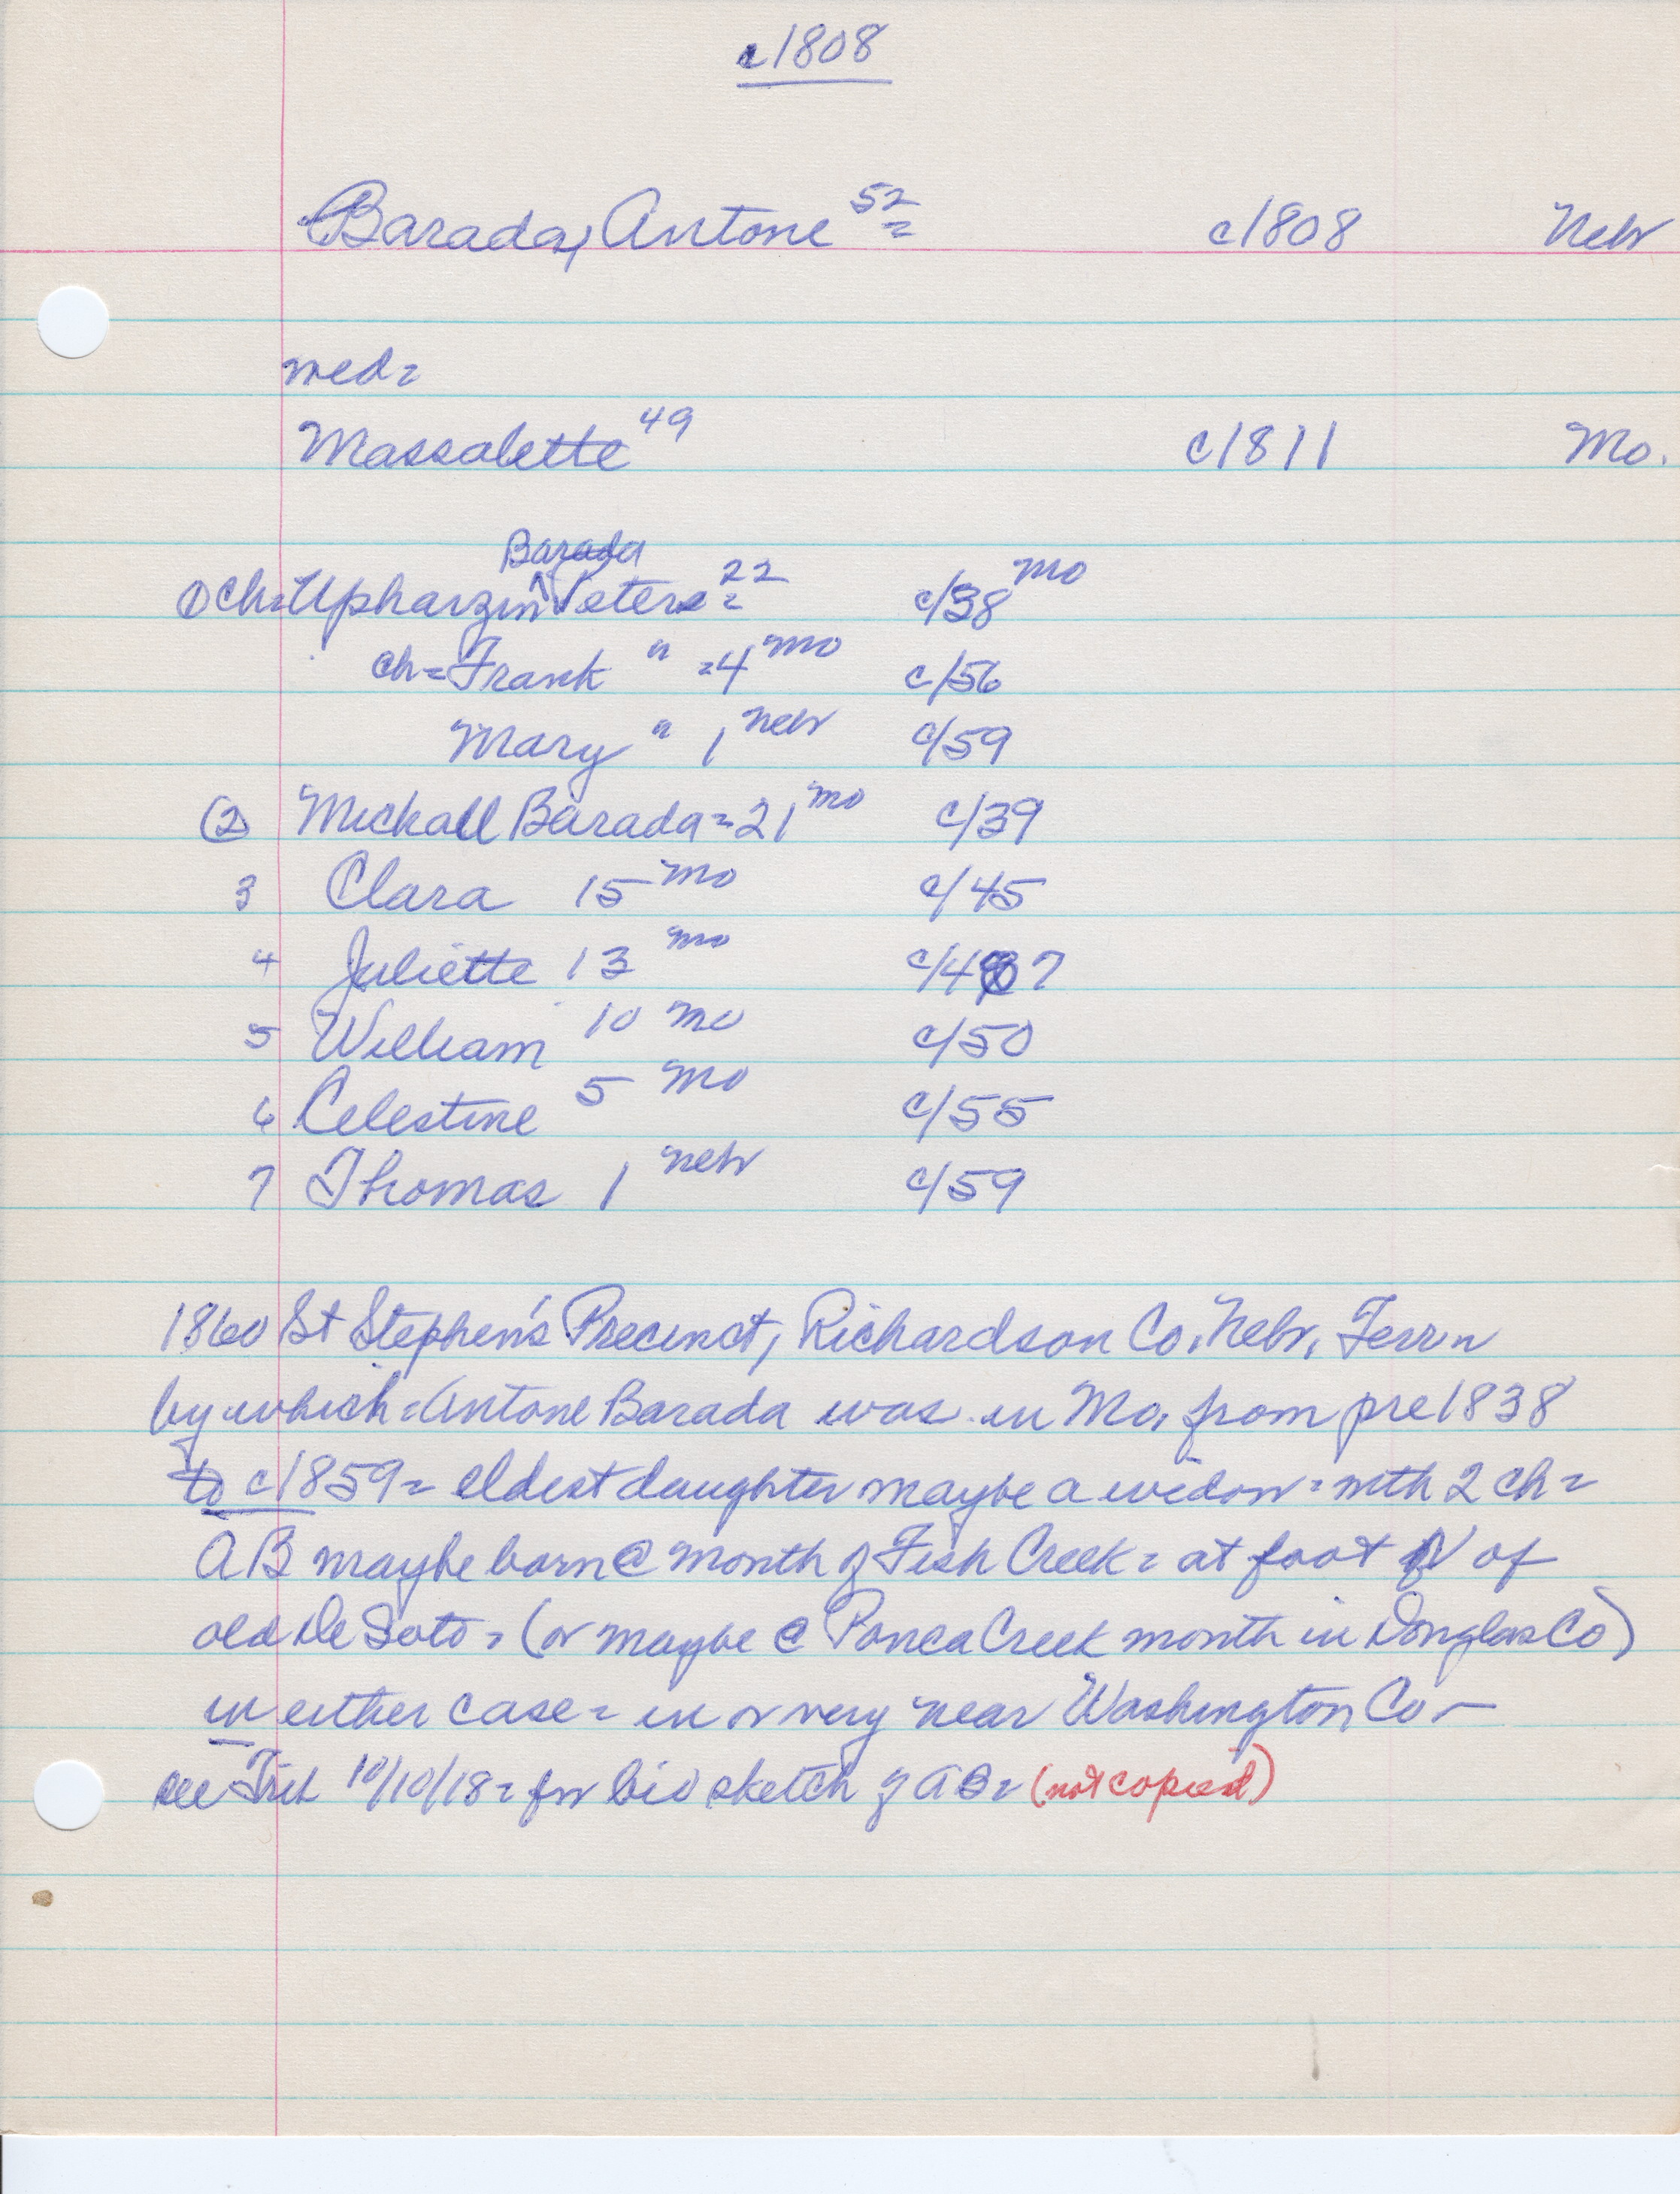 c1808
Barada, Antone 52= c1808 Nebr
med=
Massalette 49 c1811 Mo.
Barada
① ch=Upharzin ^ Peters=22 c/38 Mo
ch=Frank " =4 Mo c/56
Mary " 1 Nebr c/59
② Mickall Barada=21 Mo c/39
3 Clara 15 Mo c/45
4 Juliette 13 Mo c/47
5 William 10 Mo c/50
6 Celestine 5 Mo c/55
7 Thomas 1 Nebr c/59
1860 St Stephen's Precinct, Richardson Co. Nebr. Terr n
by which=Antone Barada was in Mo. from pre 1838
to c1859= eldest daughter maybe a widow= with 2 ch=
AB maybe born @ month of Fish Creek= at foot N of
old De Soto= (or maybe @ Ponca Creek month in Douglas Co)
in either case= in or very near Washington Co—
see 10/10/18= for bio sketch of AB= (not copied)